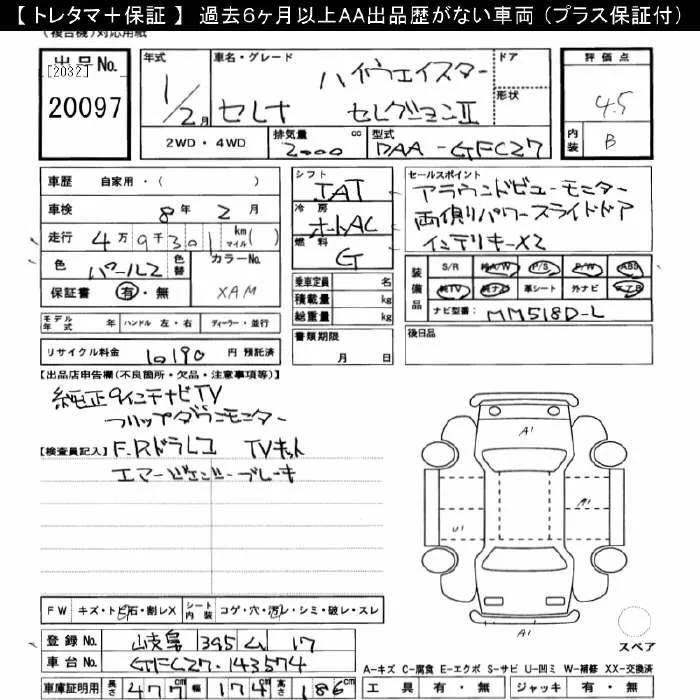 【トレタマ＋保証】 過去6ヶ月以上AA出品歴がない車両（プラス保証付）
（複合機）対応用紙
出品No.
[2032]
20097
年式
1/2月
車名・グレード
セレナ
ハイウェイスター
セレクションII
ドア
形状
評価点
4.5
内装
B
2WD・4WD
排気量
2000
cc
型式
DAA-GFC27
車歴 自家用・( )
車検 8年2月
走行 4万9千301 km マイル( )
色 パール2
色替
カラーNo.
XAM
保証書 有・無
シフト
IAT
冷房
オートAC
燃料
G
乗車定員 名
積載量 kg
総重量 kg
セールスポイント
アラウンドビューモニター
両側パワースライドドア
インテリキーX2
装備品
S/R 純A/W P/S P/W ABS
純TV 純ナビ 革シート 外ナビ エアB
ナビ型番: MM518D-L
モデル年式 年 ハンドル 左・右 ディーラー・並行
書類期限
月 日
後日品
リサイクル料金 10190 円 預託済
【出品店申告欄(不良箇所・欠品・注意事項等)】
純正9インチナビTV
フリップダウンモニター
【検査員記入】 F.Rドラレコ TVキット
エマージェンシーブレーキ
A1
A1
U1
A1
FW キズ・トビ石・割レX シート内装 コゲ・穴・汚レ・シミ・破レ・スレ
スペア
登録No. 岐阜 395 ム 17
車台No. GFC27-143574
A-キズ C-腐食 E-エクボ S-サビ U-凹ミ W-補修 XX-交換済
車庫証明用 長さ 477cm 幅 174cm 高さ 186cm
工具 有・無 ジャッキ 有・無